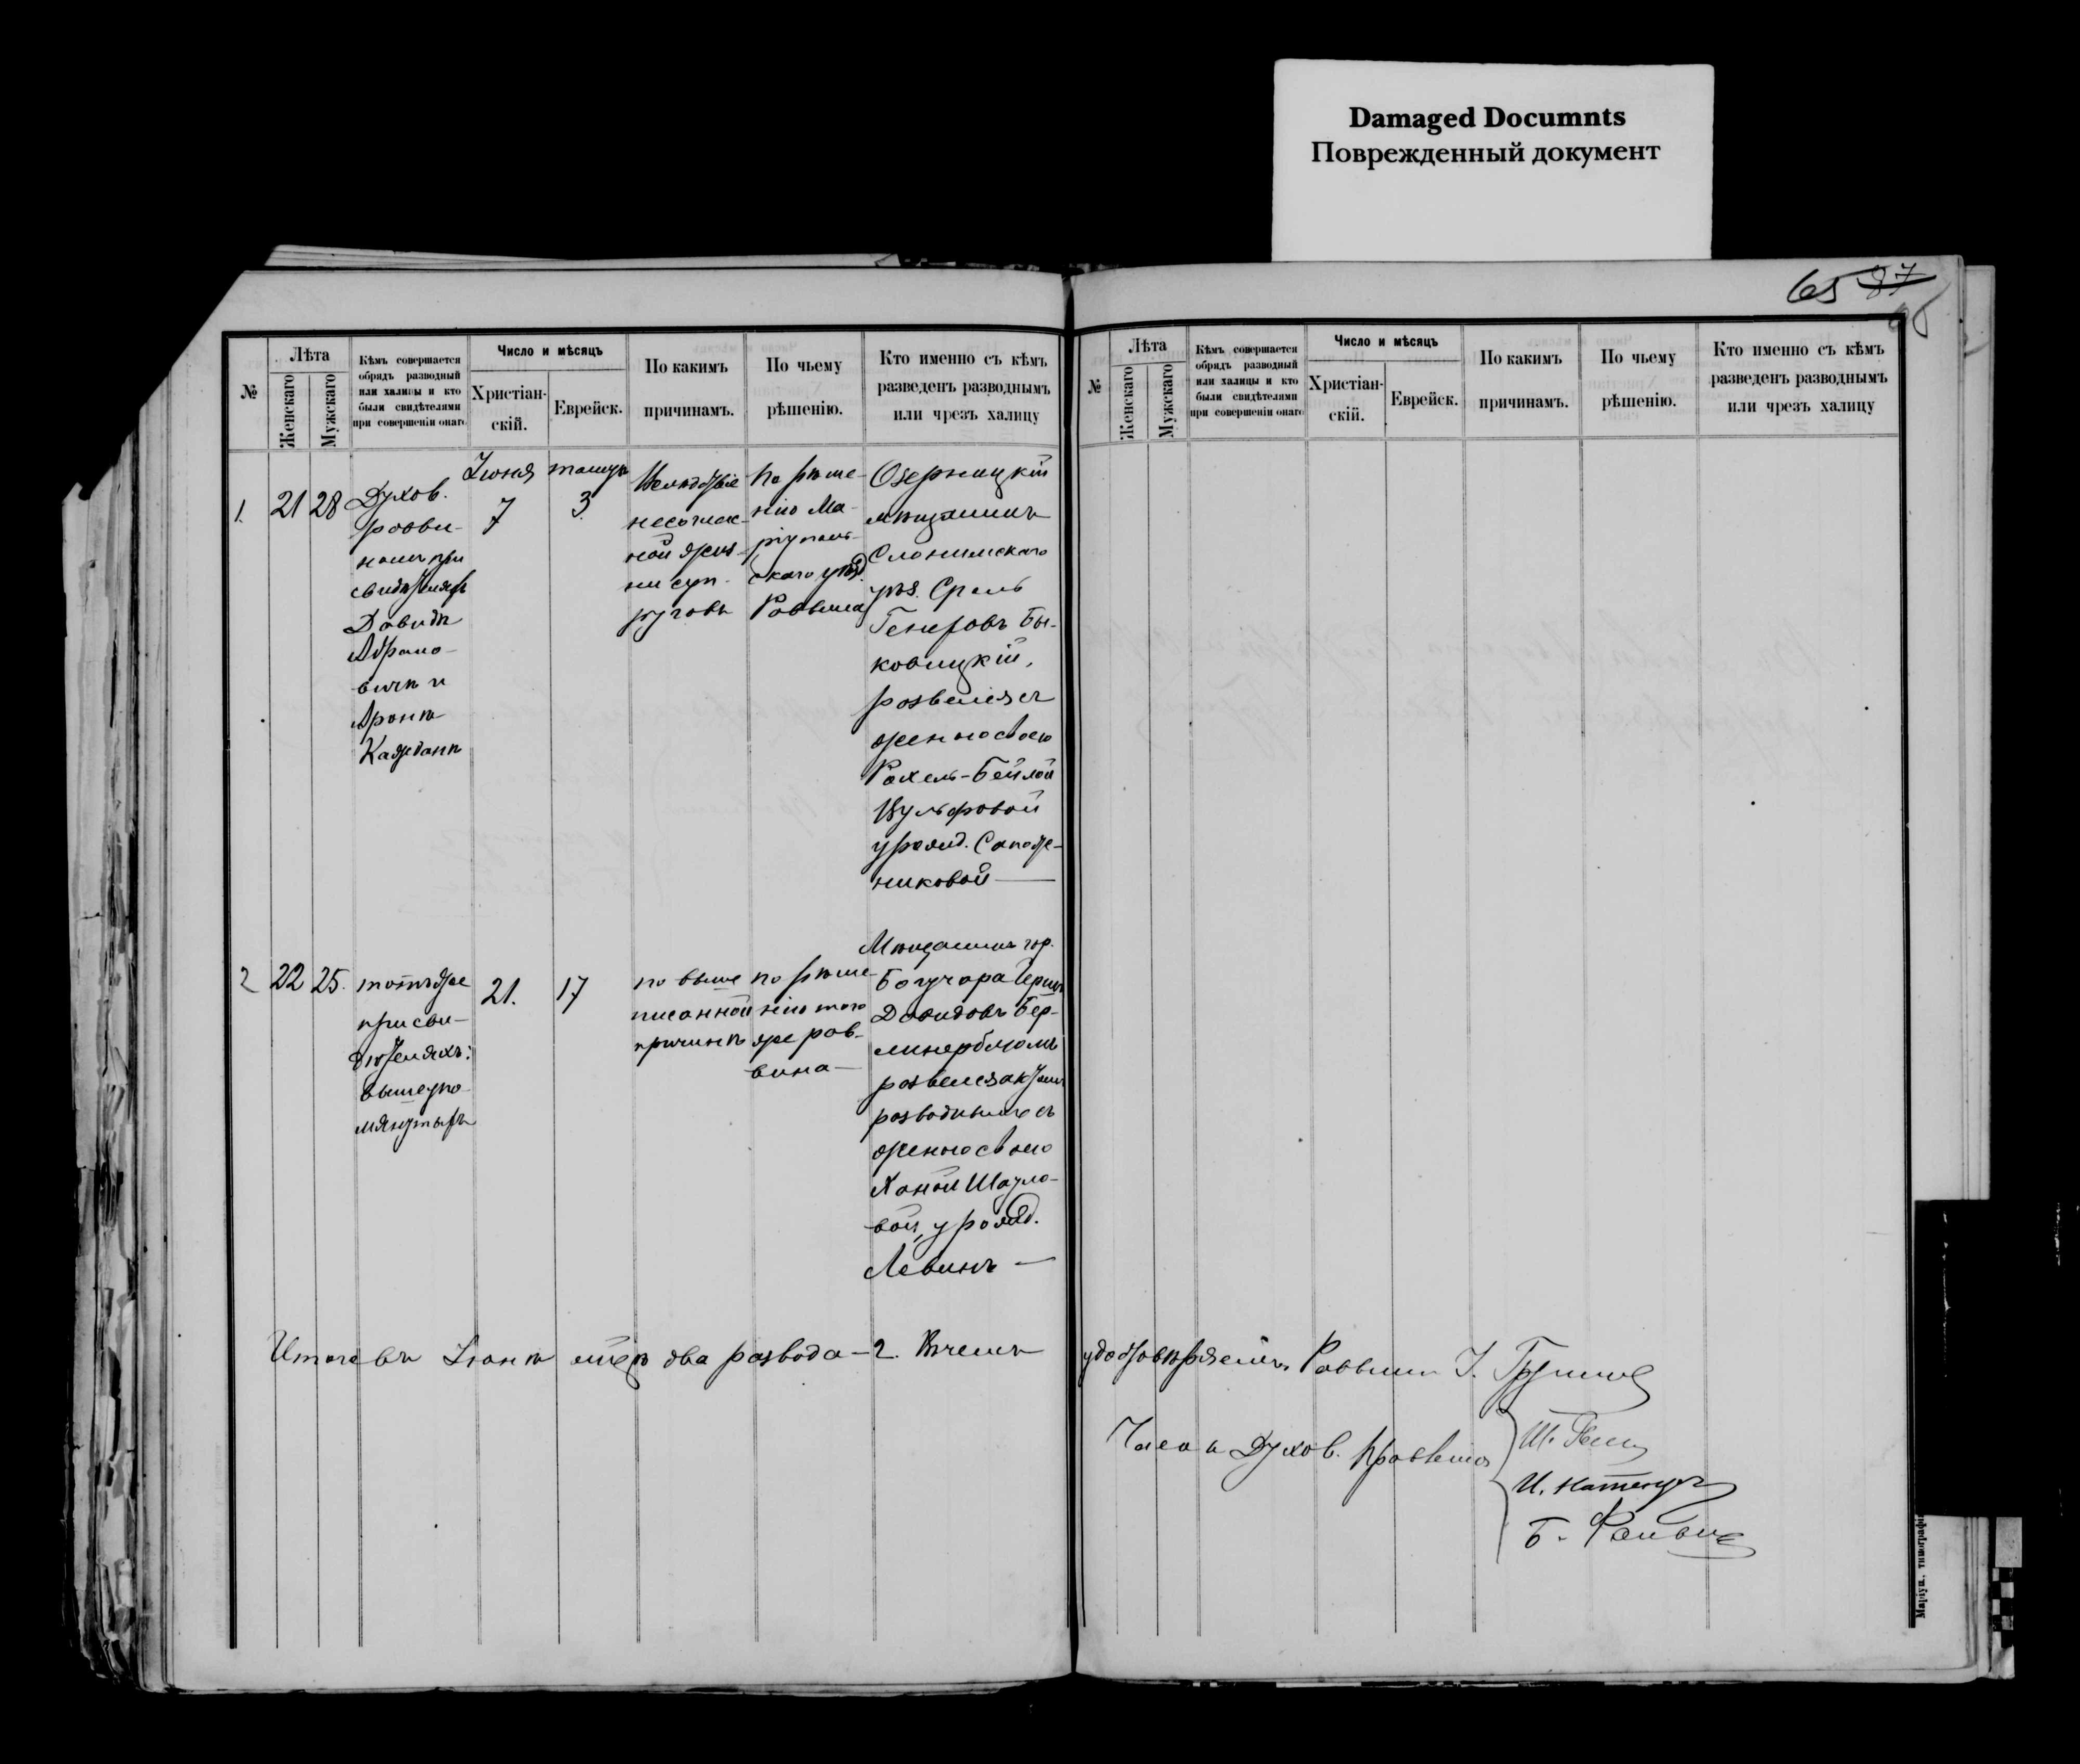 Damaged Documnts
Поврежденный документ
65 87
№
Лѣта
Женскаго
Мужскаго
Кѣмъ совершается
обрядъ разводный
или халицы и кто
были свидѣтелями
при совершеніи онаго
Число и мѣсяцъ
Христіан-
скій.
Еврейск.
По какимъ
причинамъ.
По чьему
рѣшенію.
Кто именно съ кѣмъ
разведенъ разводнымъ
или чрезъ халицу
1.
21
28
Духов.
равви-
номъ при
свидѣтеляхъ
Давидѣ
Абрамо-
вичѣ и
Аронѣ
Кажданѣ
Іюня
7
тамузъ
3
несоглас-
ной жиз-
ни суп-
руговъ
По рѣше-
нію Ма-
ріуполь-
скаго уѣзд.
Раввина
Озерницкій
мѣщанинъ
Слонимскаго
уѣз. Срель
Бы-
ковицкій,
развелся съ
женою своею
Рохель-Бейлой
Вульфовой
урожд. Сапож-
никовой
2
22
25.
тотъ же
при сви-
дѣтеляхъ:
вышеупо-
мянутыхъ
21.
17
по выше
писанной
причинѣ
по рѣше-
нію того
же рав-
вина
Мѣщанинъ гор.
Богучара Герш
Давидовъ Бер-
линерблюмъ
развелся актомъ
разводнымъ съ
женою своею
Ханой Шауло-
вой, урожд.
Левинъ
Итого въ Іюнѣ мѣс. два развода — 2. Въ чемъ
№
Лѣта
Женскаго
Мужскаго
Кѣмъ совершается
обрядъ разводный
или халицы и кто
были свидѣтелями
при совершеніи онаго
Число и мѣсяцъ
Христіан-
скій.
Еврейск.
По какимъ
причинамъ.
По чьему
рѣшенію.
Кто именно съ кѣмъ
разведенъ разводнымъ
или чрезъ халицу
удостовѣряемъ. Раввинъ
Члены Духов. Правленія